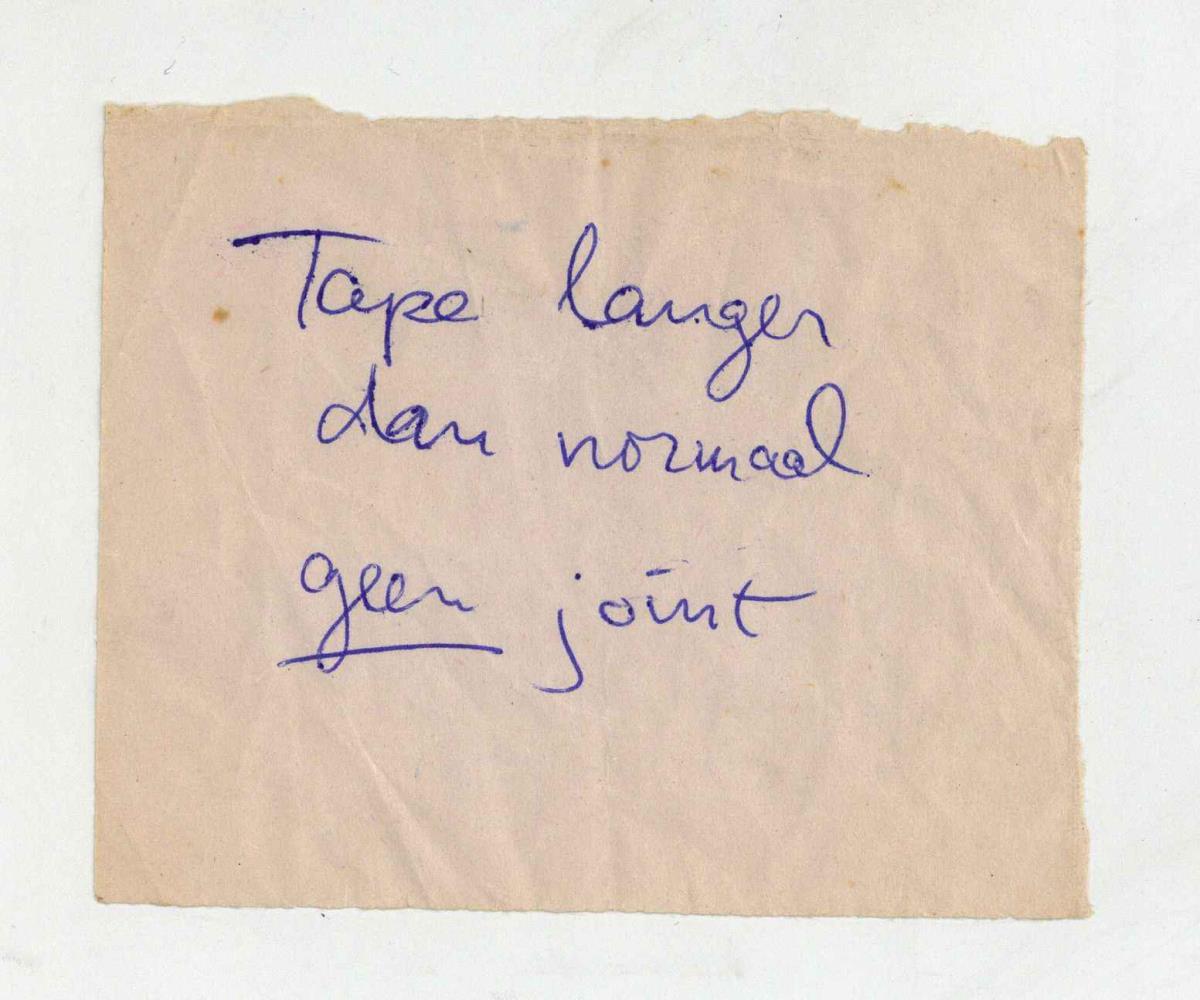 Tape langer
dan normaal
geen joint